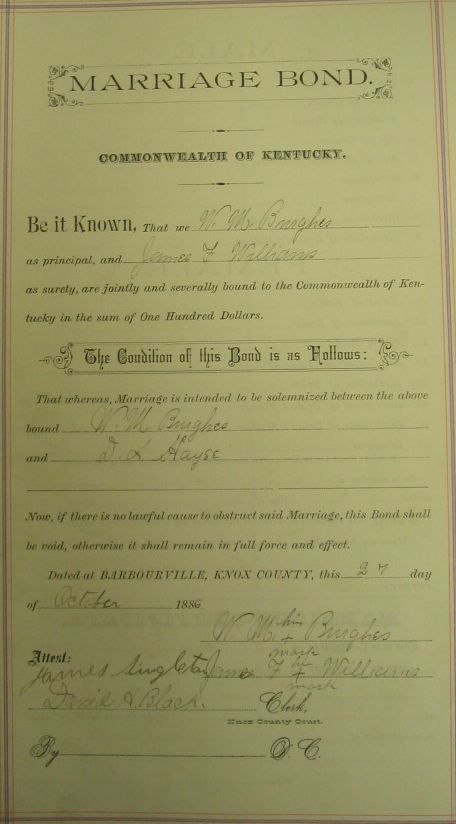 MARRIAGE BOND.
COMMONWEALTH OF KENTUCKY.
Be it Known, That we W. M. Burghes
as principal, and James F Williams
as surety, are jointly and severally bound to the Commonwealth of Ken-
tucky in the sum of One Hundred Dollars.
The Condition of this Bond is as Follows:
That whereas, Marriage is intended to be solemnized between the above
bound W. M. Burghes
and Hayse
Now, if there is no lawful cause to obstruct said Marriage, this Bond shall
be void, otherwise it shall remain in full force and effect.
Dated at BARBOURVILLE, KNOX COUNTY, this 27 day
of October 1886
his
W. M. + Burghes
mark
Attest:
James Singleton James F + Williams
his
mark
David A. Black. Clerk,
Knox County Court.
By D. C.